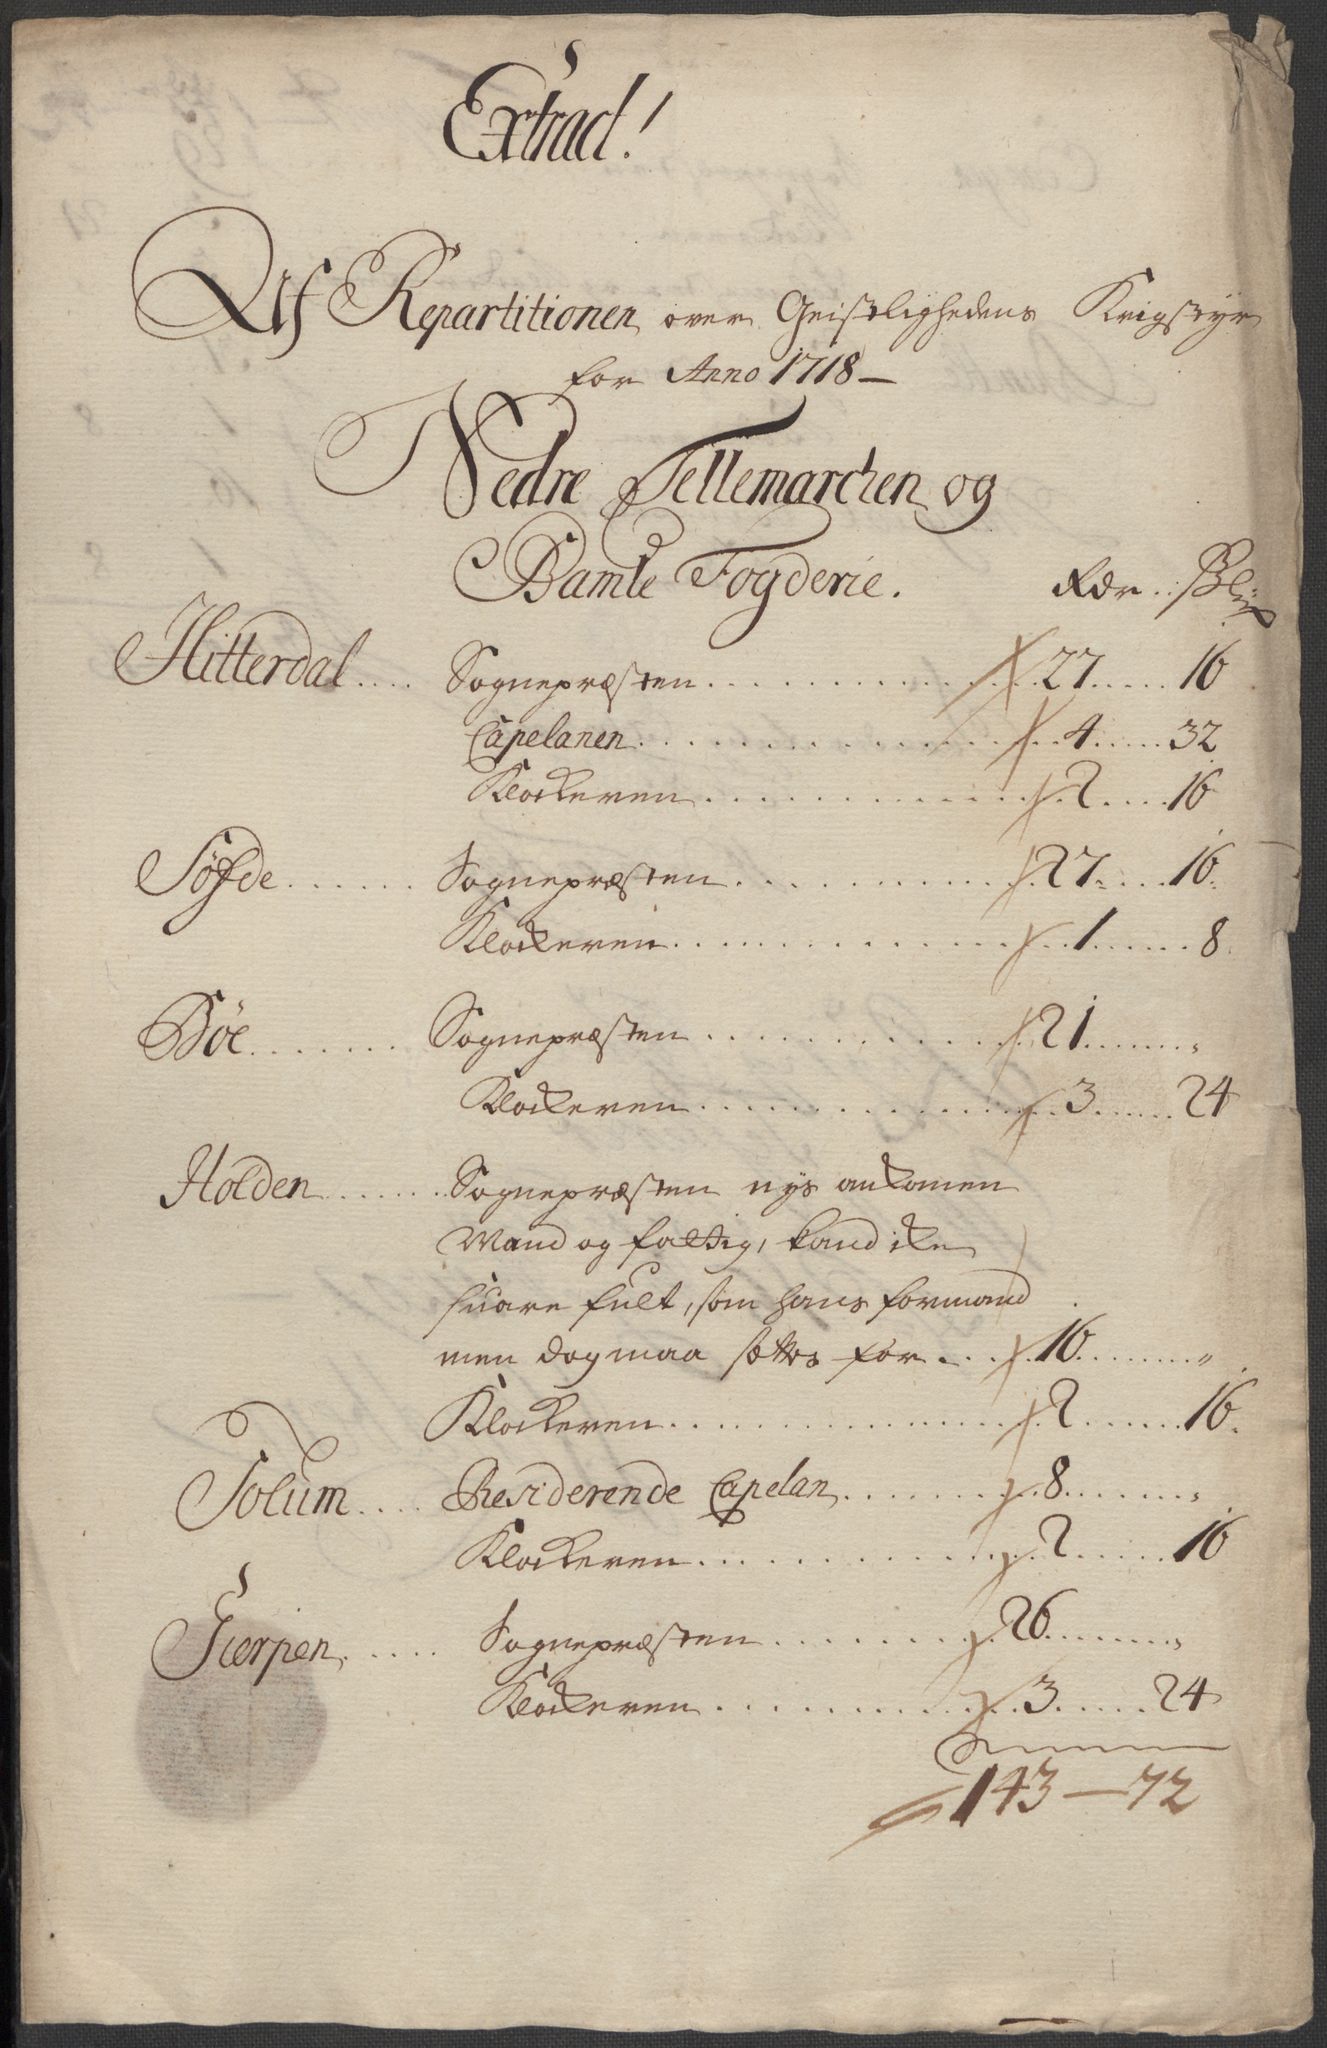 Extract!
Af Repartitionen over Geistlighedens Krigstyr
for Anno 1718 —
Nedre Tellemarchen og
Bamle Fogderie. Rdr. .
Hitterdal .... Sognepræsten ............ 27 .... 16
Capelanen ............ 4 .... 32
Klockeren ............ 2 .... 16
Søfde ...... Sognepræsten ............ 27 .... 16
Klockeren ............ 1 .... 8
Bøe ....... Sognepræsten ............ 21 ...... „
Klockeren ............ 3 .... 24
Holden ...... Sognepræsten nys ankomen
Mand og fattig, kand ike
suare fult, som hans formand
men dog maa sættes for ... 16 ...... „
Klockeren ............ 2 .... 16
Solum .... Residerende Capelan ...... 8 ...... „
Klockeren ............ 2 .... 16
Gierpen ..... Sognepræsten ........ 26 ...... „
Klockeren ............ 3 .... 24
143 — 72